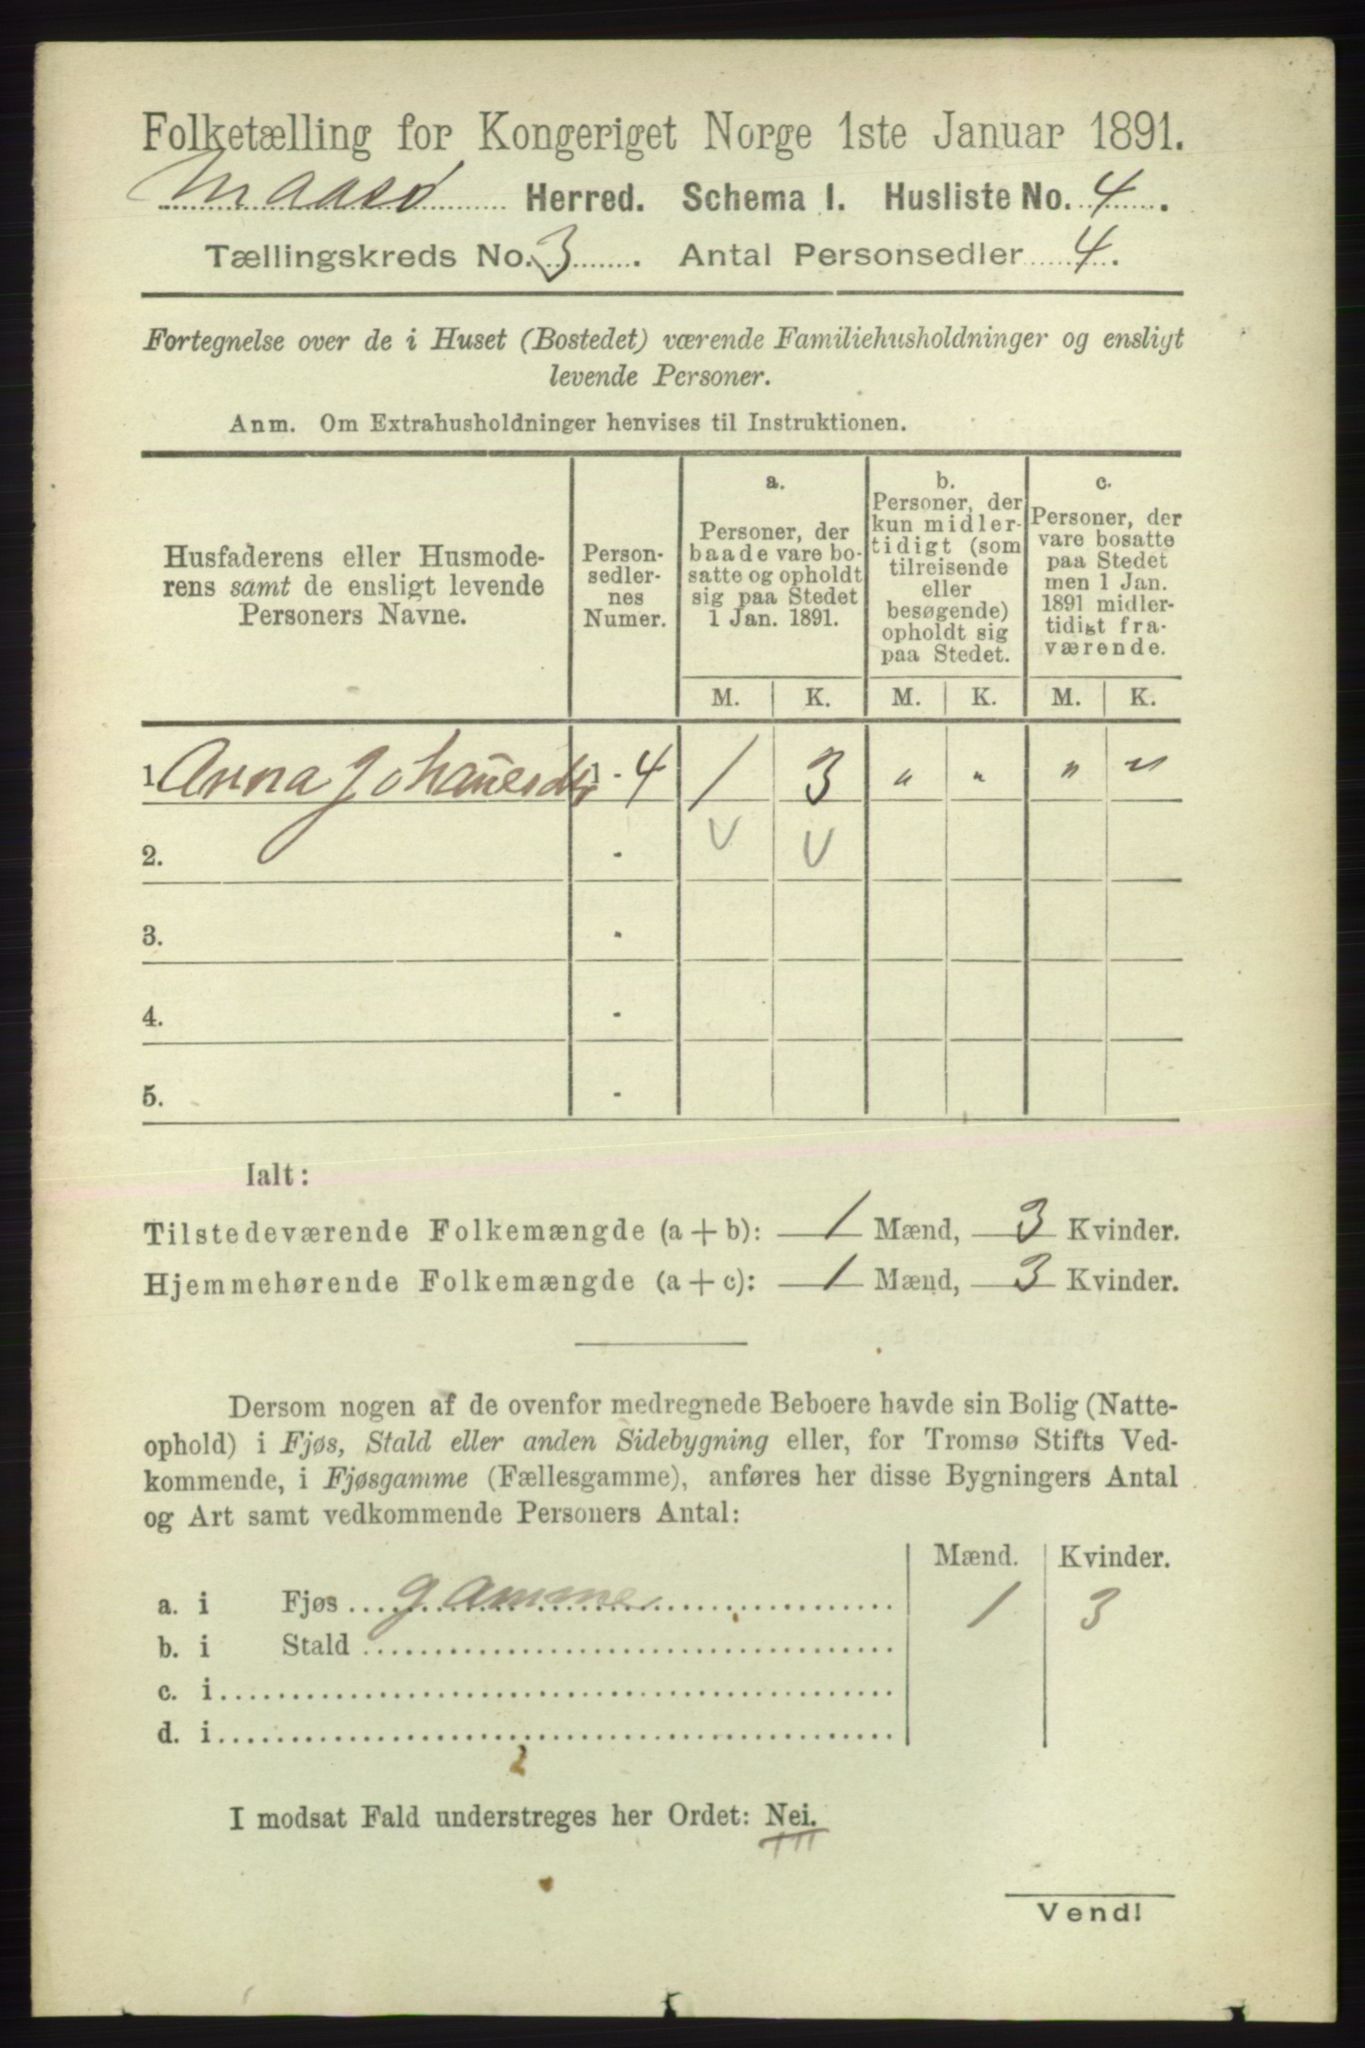 Folketælling for Kongeriget Norge 1ste Januar 1891.
Maasø Herred. Schema I. Husliste No. 4.
Tællingskreds No. 3. Antal Personsedler 4.
Fortegnelse over de i Huset (Bostedet) værende Familiehusholdninger og ensligt
levende Personer.
Anm. Om Extrahusholdninger henvises til Instruktionen.
Husfaderens eller Husmode-
rens samt de ensligt levende
Personers Navne.
Person-
sedler-
nes
Numer.
a.
Personer, der
baade vare bo-
satte og opholdt
sig paa Stedet
1 Jan. 1891.
b.
Personer, der
kun midler-
tidigt (som
tilreisende
eller
besøgende)
opholdt sig
paa Stedet.
c.
Personer, der
vare bosatte
paa Stedet
men 1 Jan.
1891 midler-
tidigt fra-
værende.
M. K. M. K. M. K.
1. Anna Johanesdtr 1 - 4 1 3 " " " "
2. - V V
3. -
4. -
5. -
Ialt:
Tilstedeværende Folkemængde (a + b): 1 Mænd, 3 Kvinder.
Hjemmehørende Folkemængde (a + c): 1 Mænd, 3 Kvinder.
Dersom nogen af de ovenfor medregnede Beboere havde sin Bolig (Natte-
ophold) i Fjøs, Stald eller anden Sidebygning eller, for Tromsø Stifts Ved-
kommende, i Fjøsgamme (Fællesgamme), anføres her disse Bygningers Antal
og Art samt vedkommende Personers Antal:
Mænd. Kvinder.
a. i Fjøs gamme 1 3
b. i Stald
c. i
d. i
I modsat Fald understreges her Ordet: Nei.
Vend!